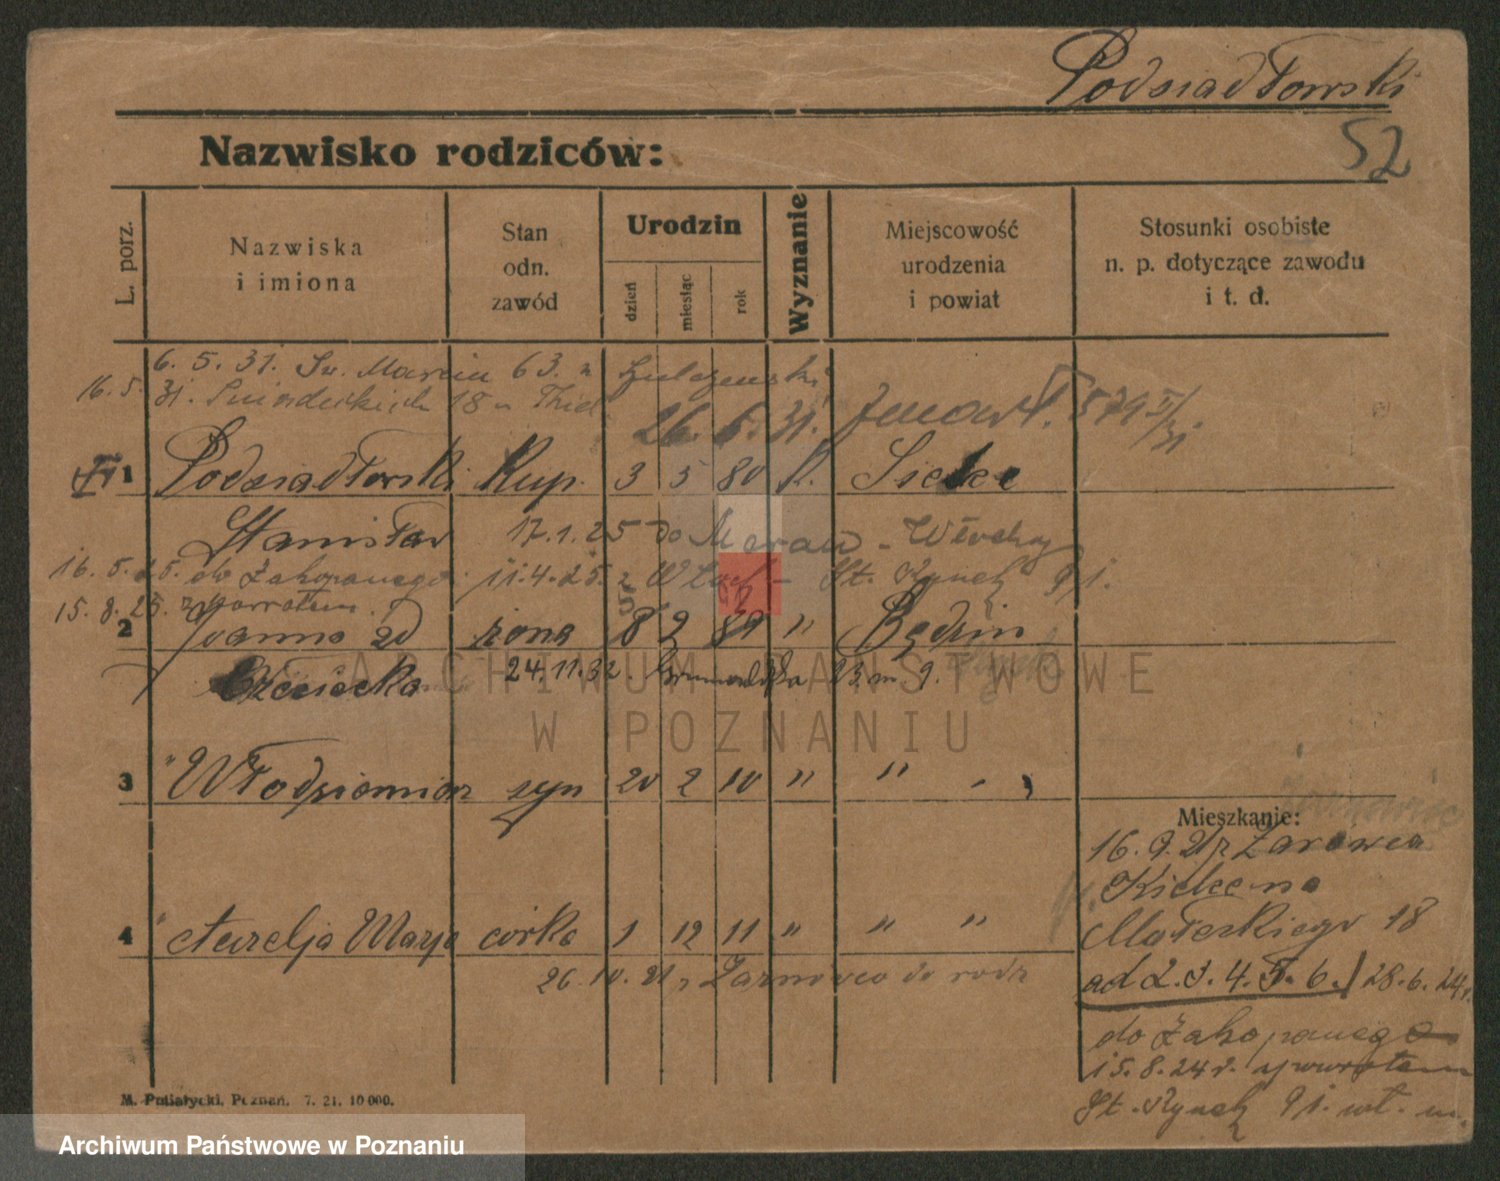 Podsiadłowski
52
Nazwisko rodziców:
L. porz.
Nazwiska i imiona
Stan odn. zawód
Urodzin
dzień
miesiąc
rok
Wyznanie
Miejscowość urodzenia i powiat
Stosunki osobiste n. p. dotyczące zawodu i t. d.
6. 5. 31. Św. Marcin 63. z
16. 5. 31. Śniadeckich 18
26. 6. 31.
1 Podsiadłowski Kup. 3 5 80 k. Sielce
Stanisław 17.1.25 do Meran - Włochy
16. 5. 25. do Zakopanego 11.4.25. z Włoch - St. Rynek 91.
15. 8. 25. z powrotem
2 Joanna zd żona 8 2 89 " Będzin
24. 11. 32. Grunwaldzka 23. m. 9.
3 " Włodzimierz syn 20 2 10 " " "
Mieszkanie:
16. 9. 21 z Żarnowca
Kielce na
Małeckiego 18
4 " Aurelja Marja córka 1 12 11 " " "
26. 10. 21 z Żarnowca do rodz
ad 2. 3. 4. 5. 6. / 28. 6. 24 r.
do Zakopanego
15. 8. 24 r. z powrotem
St. Rynek 91. wł. m.
M. Putiatycki, Poznań. 7. 21. 10 000.
ARCHIWUM PAŃSTWOWE
W POZNANIU
Archiwum Państwowe w Poznaniu